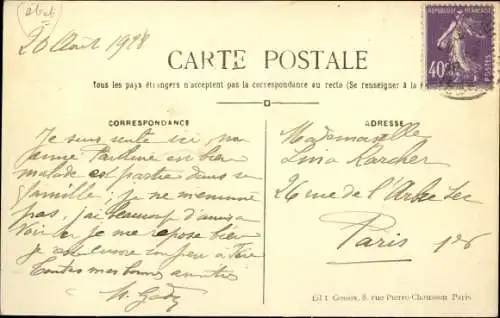 20 Août 1928
CARTE POSTALE
Tous les pays étrangers n'acceptent pas la correspondance au recto (Se renseigner à la
CORRESPONDANCE
Je suis seule ici, ma
bien
malade est partie dans sa
famille; je ne m'ennuie
pas, j'ai beaucoup d'amis a
Voir et je me repose bien
je
toutes mes bonnes amitiés
ADRESSE
Mademoiselle
Lina Karcher
26 rue de l'Arbre Sec
Paris 1er
REPUBLIQUE FRANÇAISE
40c
POSTES
Edit Gossos, 8, rue Pierre-Chausson Paris